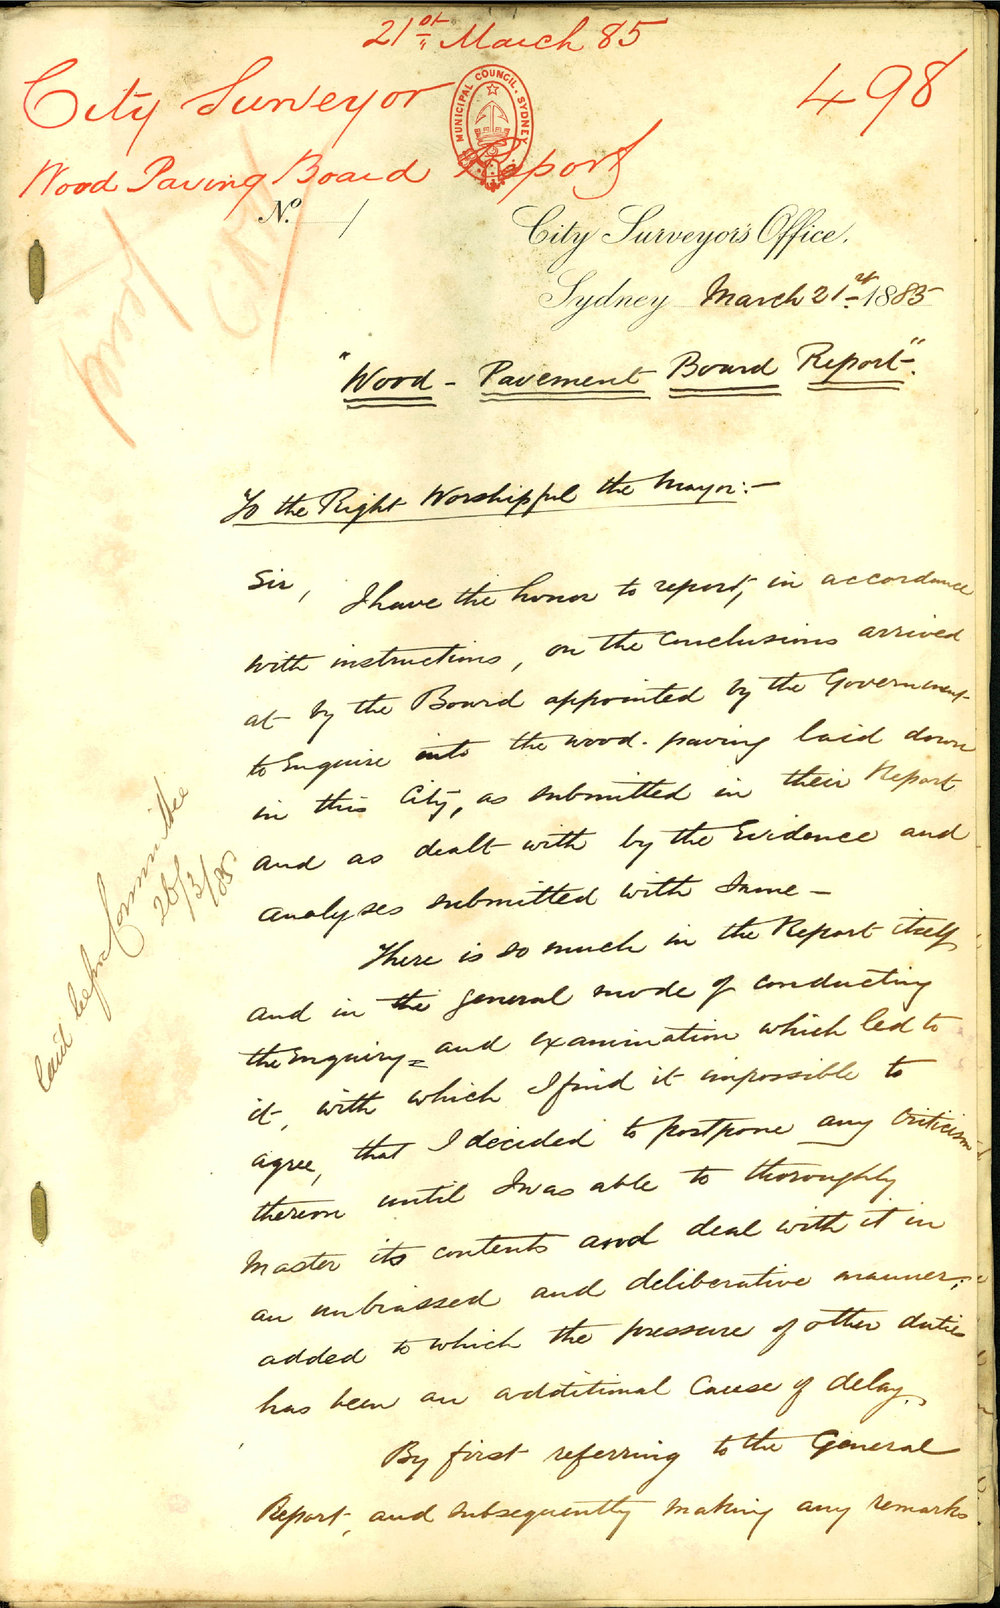 21st March 85
City Surveyor
498
MUNICIPAL COUNCIL. SYDNEY
Wood Paving Board Report
No.
City Surveyor's Office.
Sydney March 21st 1885
"Wood - Pavement Board Report".
To the Right Worshipful the Mayor:—
Sir, I have the honor to report, in accordance
with instructions, on the conclusions arrived
at by the Board appointed by the Government
to Enquire into the wood-paving laid down
in this City, as submitted in their Report
and as dealt with by the Evidence and
analyses submitted with Same —
There is so much in the Report itself
and in the general mode of conducting
the Enquiry = and examination which led to
it, with which I find it impossible to
agree, that I decided to postpone any criticism
thereon until I was able to thoroughly
Master its contents and deal with it in
an unbiassed and deliberative manner;
added to which the pressure of other duties
has been an additional cause of delay.
By first referring to the General
Report, and subsequently making any remarks
laid before Committee
26/3/85